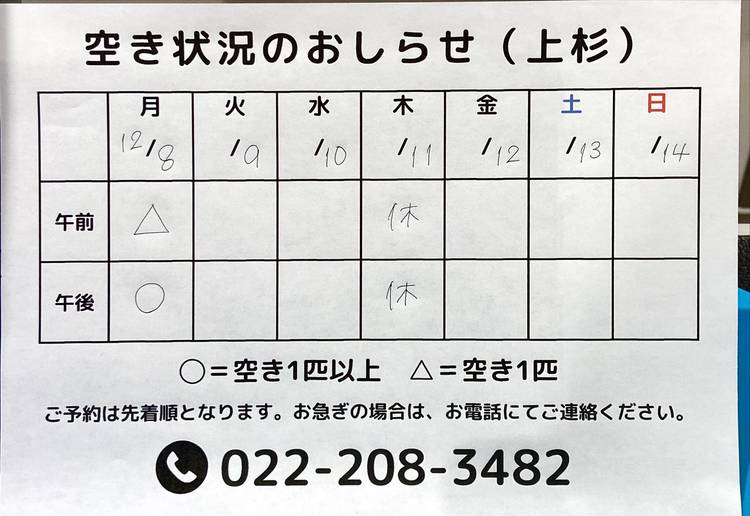 空き状況のおしらせ（上杉）
月 火 水 木 金 土 日
12/8 /9 /10 /11 /12 /13 /14
午前 △ 休
午後 ○ 休
○＝空き1匹以上 △＝空き1匹
ご予約は先着順となります。お急ぎの場合は、お電話にてご連絡ください。
022-208-3482